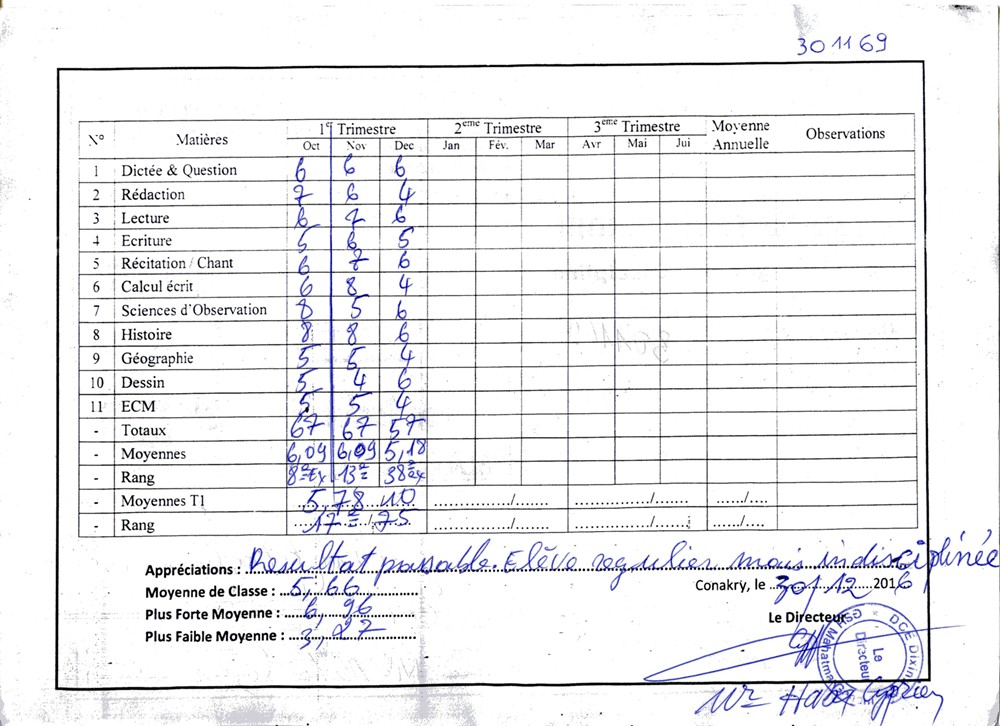 30 11 69
N° Matières 1er Trimestre 2eme Trimestre 3eme Trimestre Moyenne Annuelle Observations
Oct Nov Dec Jan Fév. Mar Avr Mai Jui
1 Dictée & Question 6 6 6
2 Rédaction 7 6 4
3 Lecture 6 7 6
4 Ecriture 5 6 5
5 Récitation / Chant 6 7 6
6 Calcul écrit 6 8 4
7 Sciences d'Observation 8 5 6
8 Histoire 8 8 6
9 Géographie 5 5 4
10 Dessin 5 4 6
11 ECM 5 5 4
- Totaux 67 67 57
- Moyennes 6,09 6,09 5,18
- Rang 8e Ex 13e 38e ex
- Moyennes T1 5,78/10 ............../........ ............../........ ....../....
- Rang 17e/75 ............../........ ............../........ ....../....
Appréciations : Resultat passable. Elève regulier mais indisciplinée
Moyenne de Classe : 5,66
Conakry, le 30/12 2016
Plus Forte Moyenne : 6,96
Le Directeur
Plus Faible Moyenne : 3,27
DCE Dixin
Le Directeur
Mr